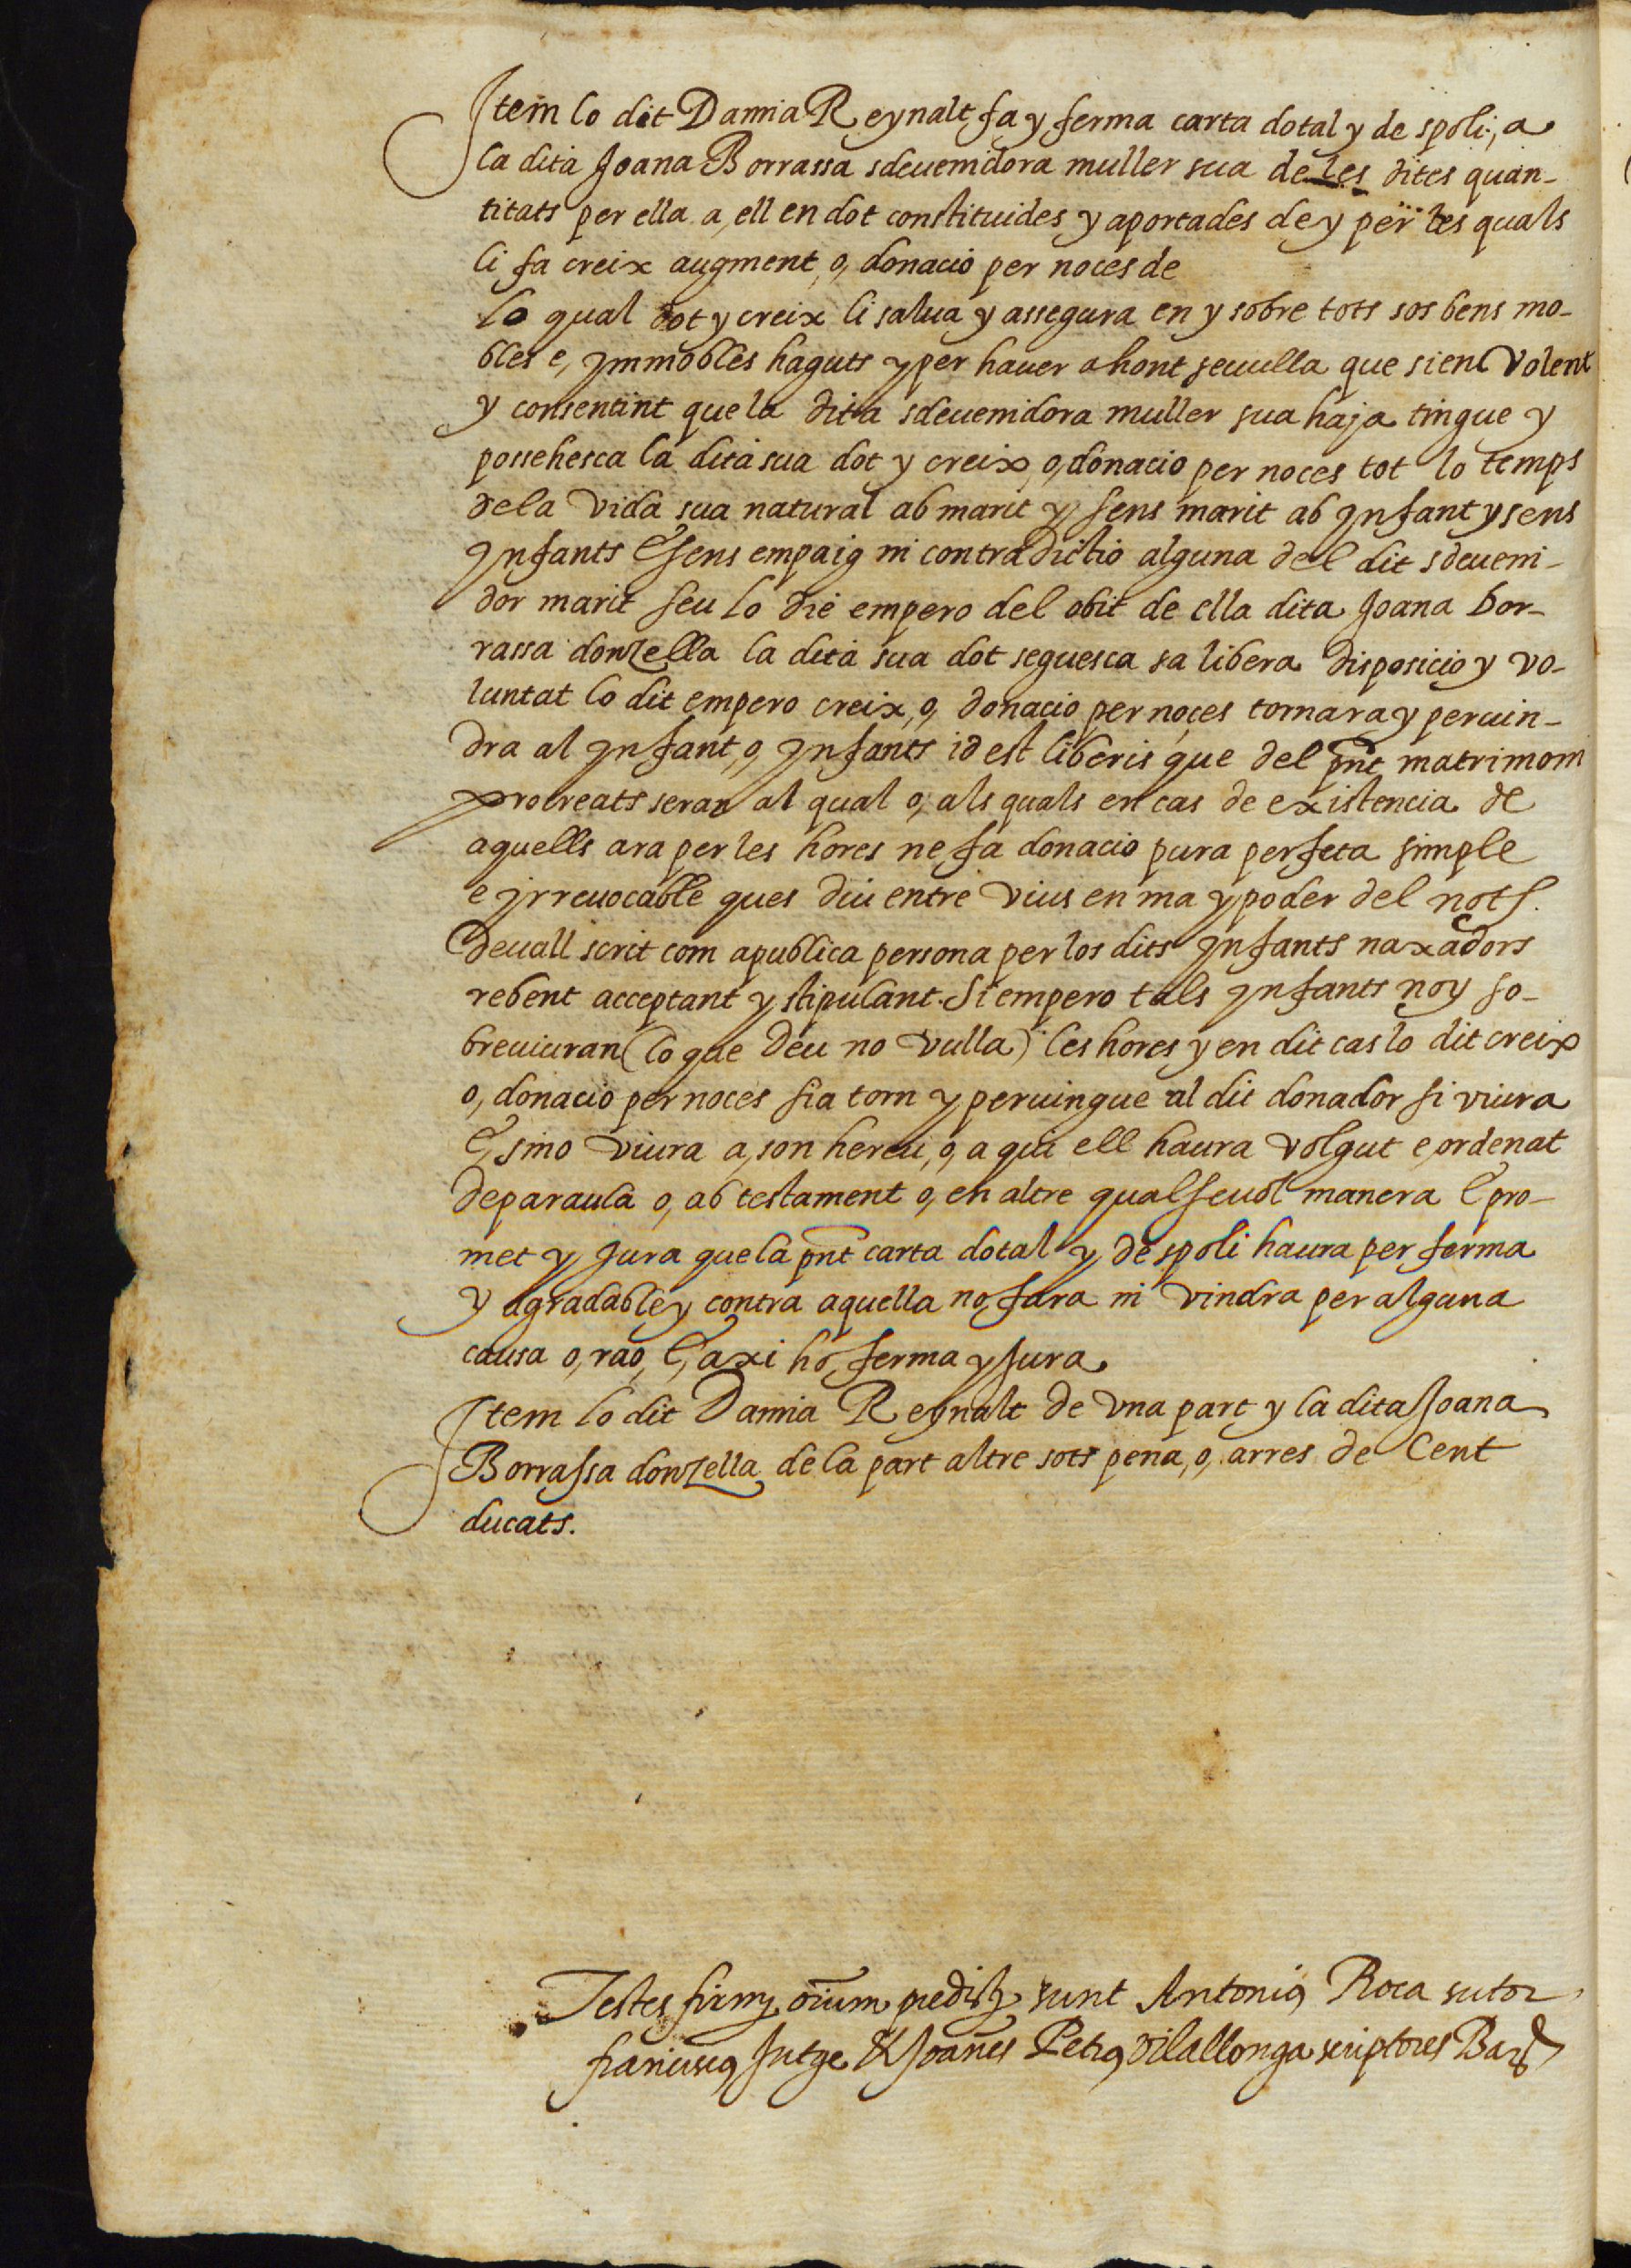 Item lo dit Damia Reynalt fa y ferma carta dotal y de spoli, a
la dita Joana Borrassa sdeuenidora muller sua de les dites quan-
titats per ella a, ell en dot constituides y aportades de y per les quals
li fa creix augment, o, donacio per noces de
lo qual dot y creix li salua y assegura en y sobre tots sos bens mo-
bles e, ymmobles haguts y per hauer ahont seuulla que sien Volent
y consentint que la dita sdeuenidora muller sua haja tingue y
possehesca la dita sua dot y creix, o, donacio per noces tot lo temps
de la Vida sua natural ab marit y sens marit ab ynfant y sens
ynfants E sens empaig ni contradictio alguna del dit sdeueni-
dor marit seu lo die empero del obit de ella dita Joana bor-
rassa donzella la dita sua dot seguesca sa libera disposicio y vo-
luntat lo dit empero creix, o, donacio per noces tornara y peruin-
dra al ynfant, o, ynfants id est liberis que del pnt matrimoni
procreats seran al qual o, als quals en cas de existencia de
aquells ara per les hores ne fa donacio pura perfeta simple
e yrreuocable ques diu entre Vius en ma y poder del not.
deuall scrit com a publica persona per los dits ynfants naxadors
rebent acceptant y stipulant. Si empero tals ynfants noy so-
breuiuran (lo que Deu no vulla) les hores y en dit cas lo dit creix
o, donacio per noces sia torn y peruingue al dit donador si viura
E, sino viura a, son hereu, o, a qui ell haura volgut e, ordenat
de paraula o, ab testament o, en altre qualseuol manera E pro-
met y Jura que la pnt carta dotal y de spoli haura per ferma
y agradable y contra aquella no fara ni vindra per alguna
causa o, rao, E, axi ho ferma y Jura.
Item lo dit Damia Reynalt de vna part y la dita Joana
Borrassa donzella de la part altre sots pena, o, arres de Cent
ducats.
Testes firmę oium pedistę sunt Antoniꝯ Roca sutor
franciscꝯ Jutge & Joanes Petrꝯ Vilallonga scriptores Bar